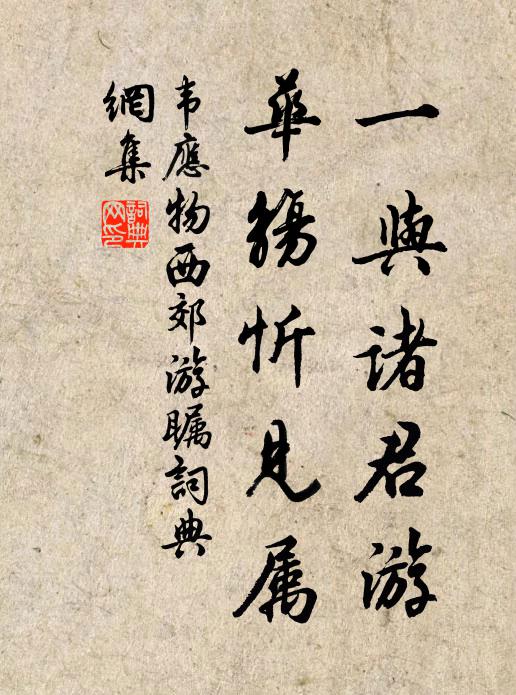 一與诸君游
華觴忻見属
韦應物西郊游矚詞典
網集
詞典網印